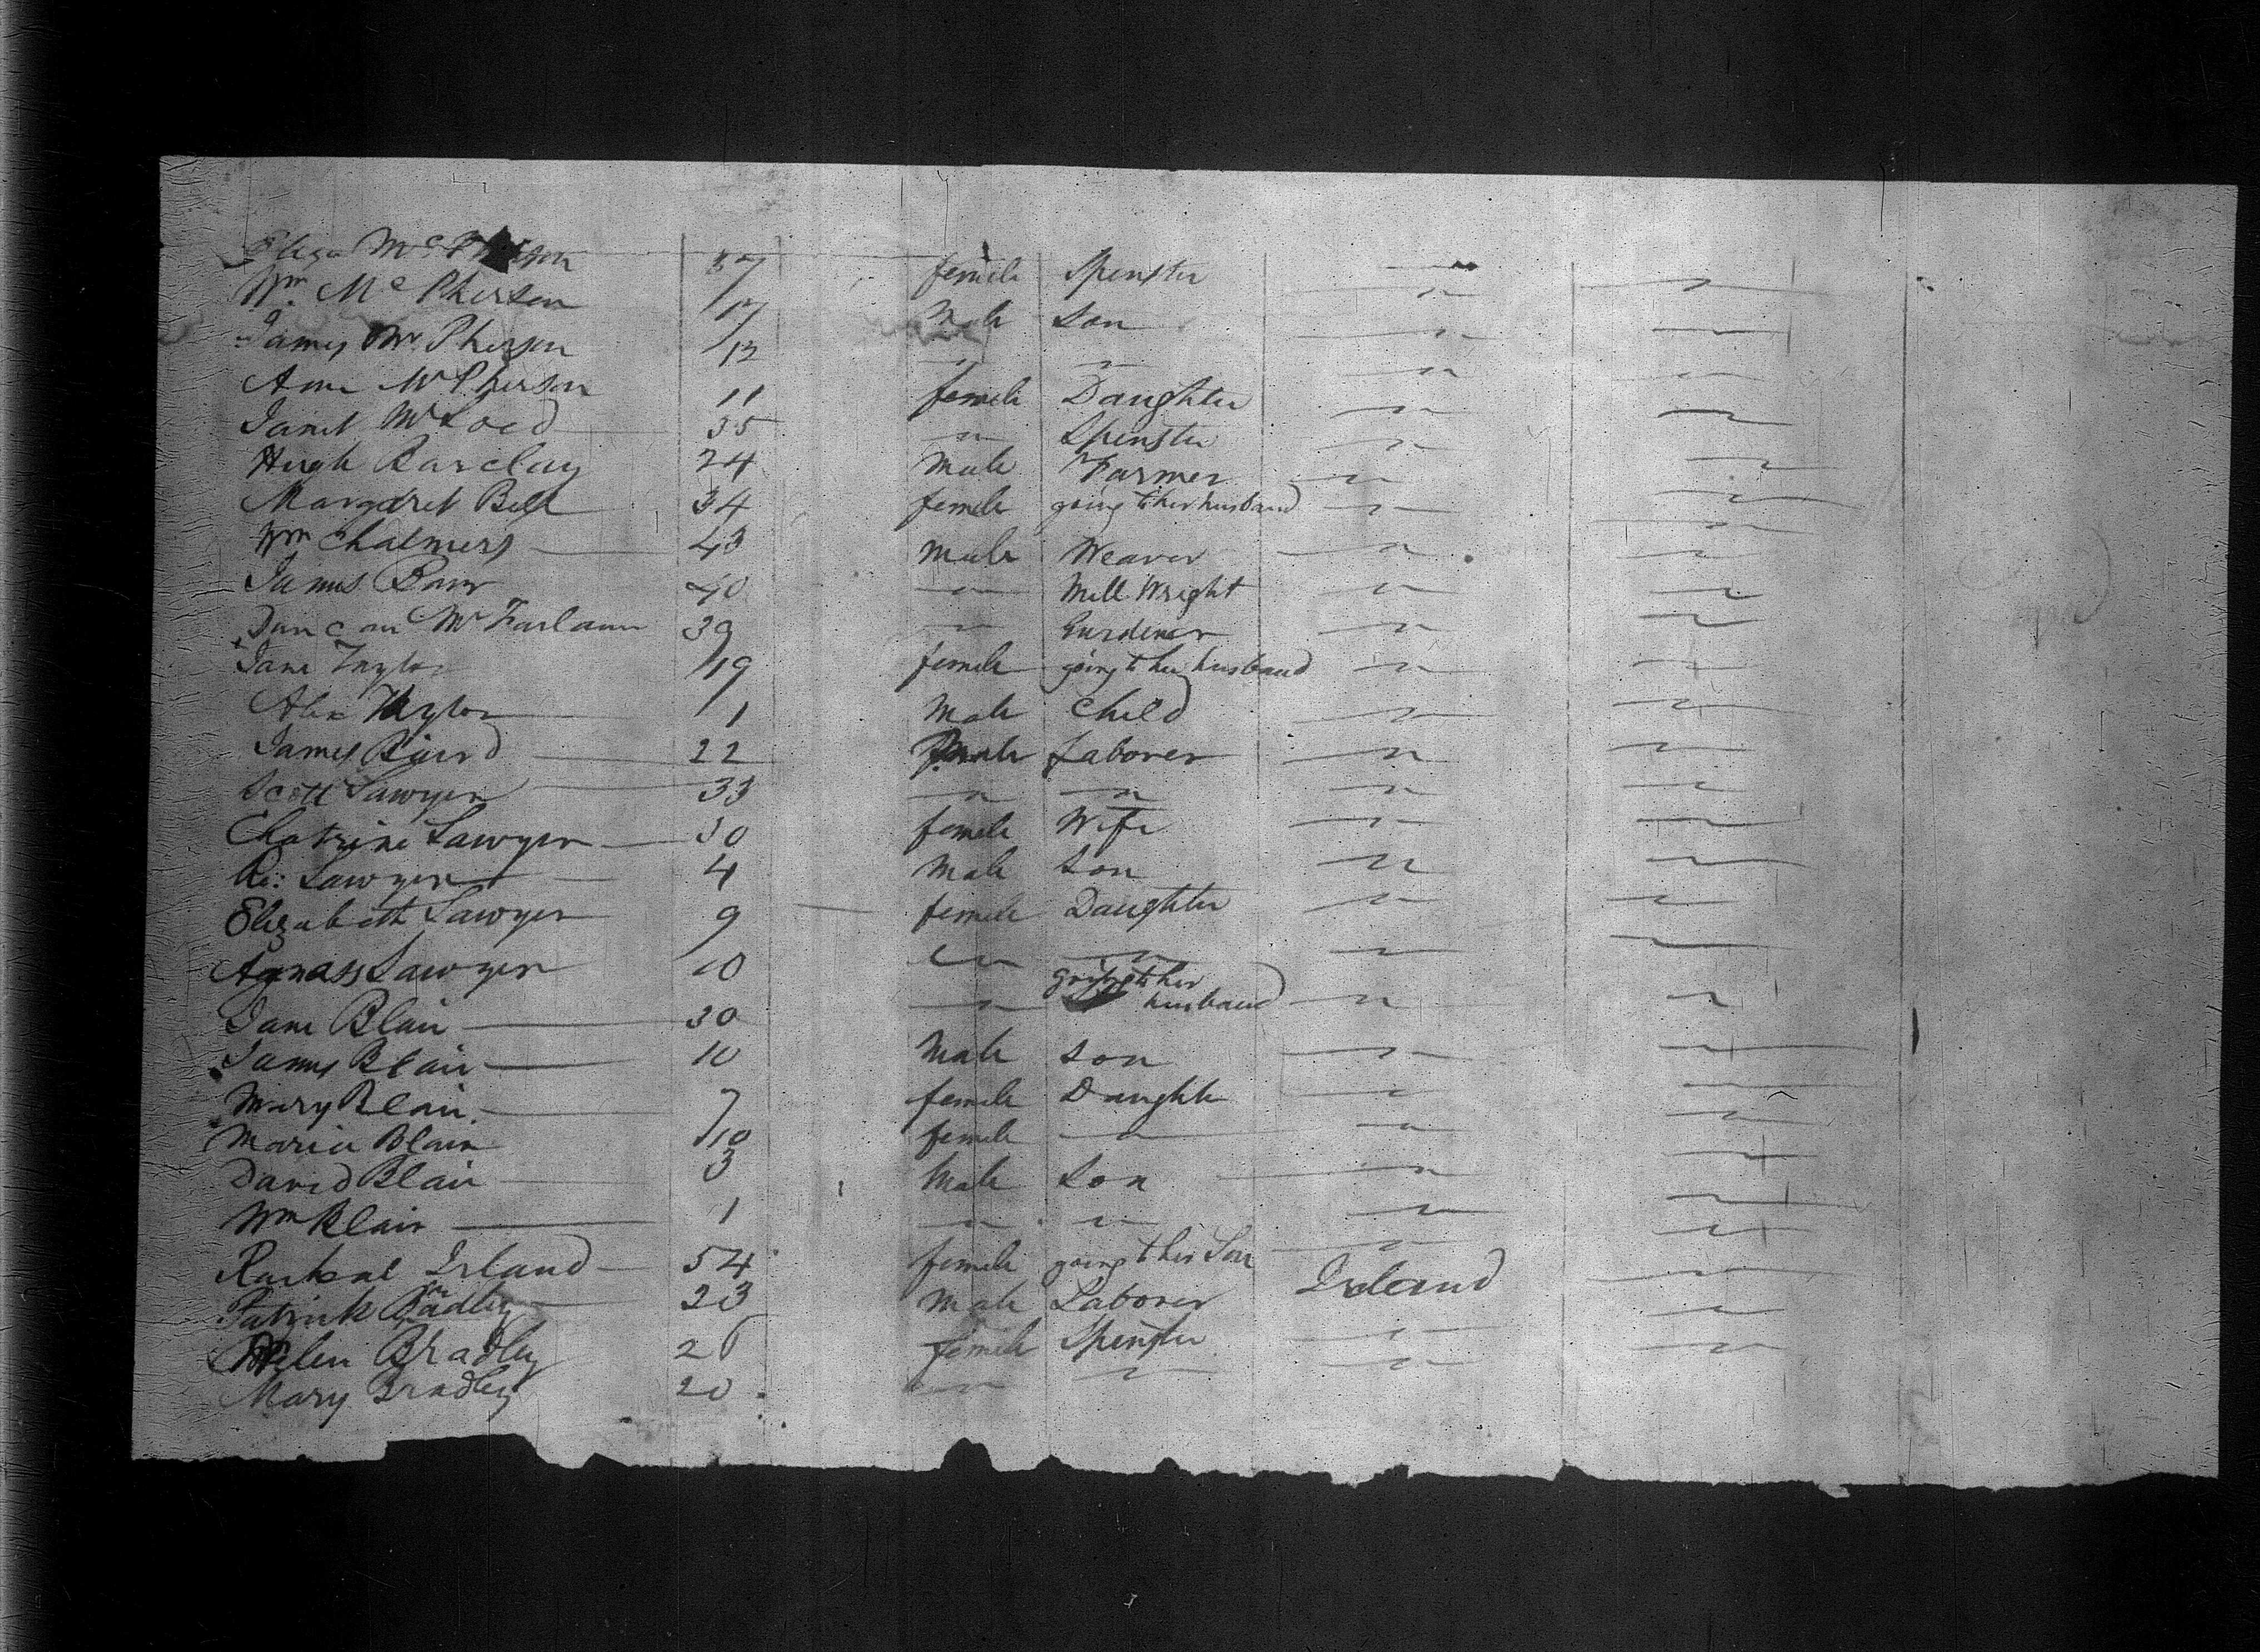 Eliza Mc Pherson 37 female Spenster " "
Wm Mc Pherson 17 Male Son " "
James Mc Pherson 13 " " " "
Ann Mc Pherson 11 female Daughter " "
Janet Mc Loed 35 " Spenster " "
Hugh Barclay 24 Male Farmer " "
Margaret Bell 34 female going to her husband " "
Wm Chalmers 43 Male Weaver " "
James Barr 40 " Mill Wright " "
Duncan Mc Farlann 39 " Gurdener " "
Jane Taylor 19 female going to her husband " "
Alex Taylor 1 Male Child " "
James Baird 22 Male Laborer " "
Scott Sawyer 33 " " " "
Chatrine Sawyer 30 female Wife " "
Sawyer 4 Male Son " "
Elizabeth Sawyer 9 female Daughter " "
Agnass Sawyer 10 " " " "
Jane Blair 30 " going to her husband " "
James Blair 10 Male Son " "
Mary Blair 7 female Daughte " "
Maria Blair female " " "
David Blair 3 Male Son " "
Wm Blair 1 " " " "
Racheal Irland 54 female going to her Son " "
Patrick Bradley 23 Male Laborer Ireland "
Helen Bradley 26 female Spenster " "
Mary Bradley 20 " " " "